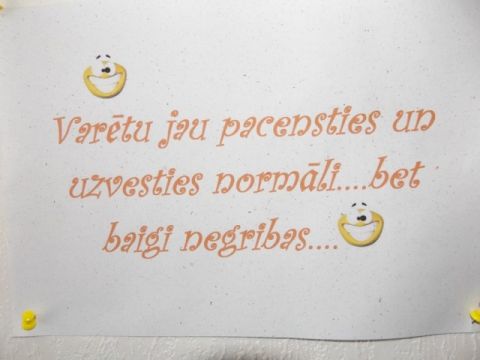 Varētu jau pacensties un
uzvesties normāli....bet
baigi negribas....